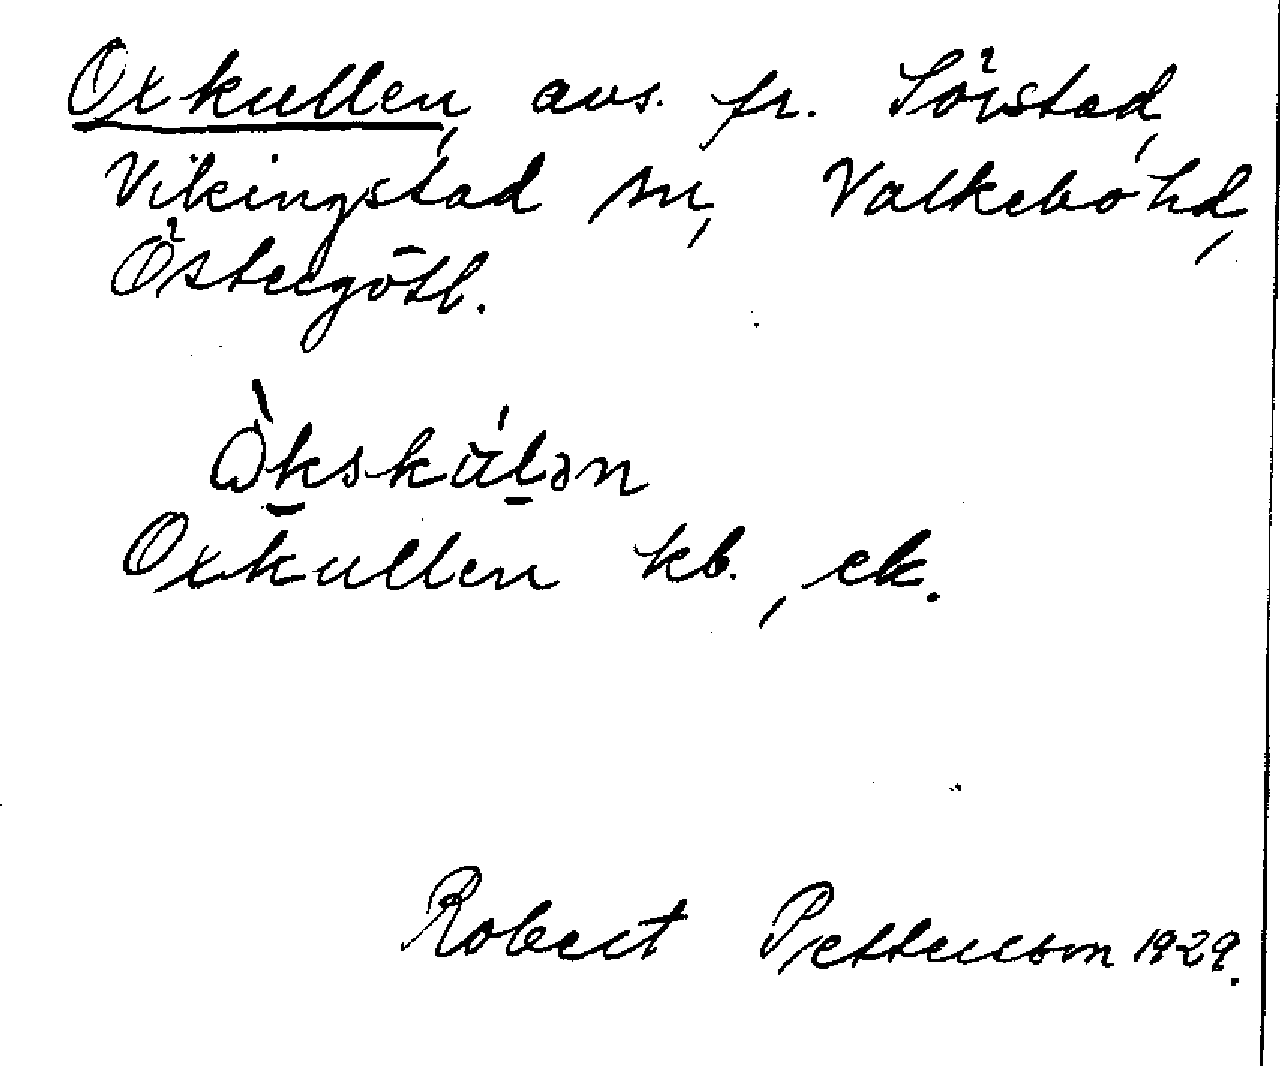 Oxkullen, avs. fr. Sörstad,
Vikingstad sn, Valkebo hd,
Östergötl.
Òkskúlən
Oxkullen kb., ek.
Robert Petterson 1929.